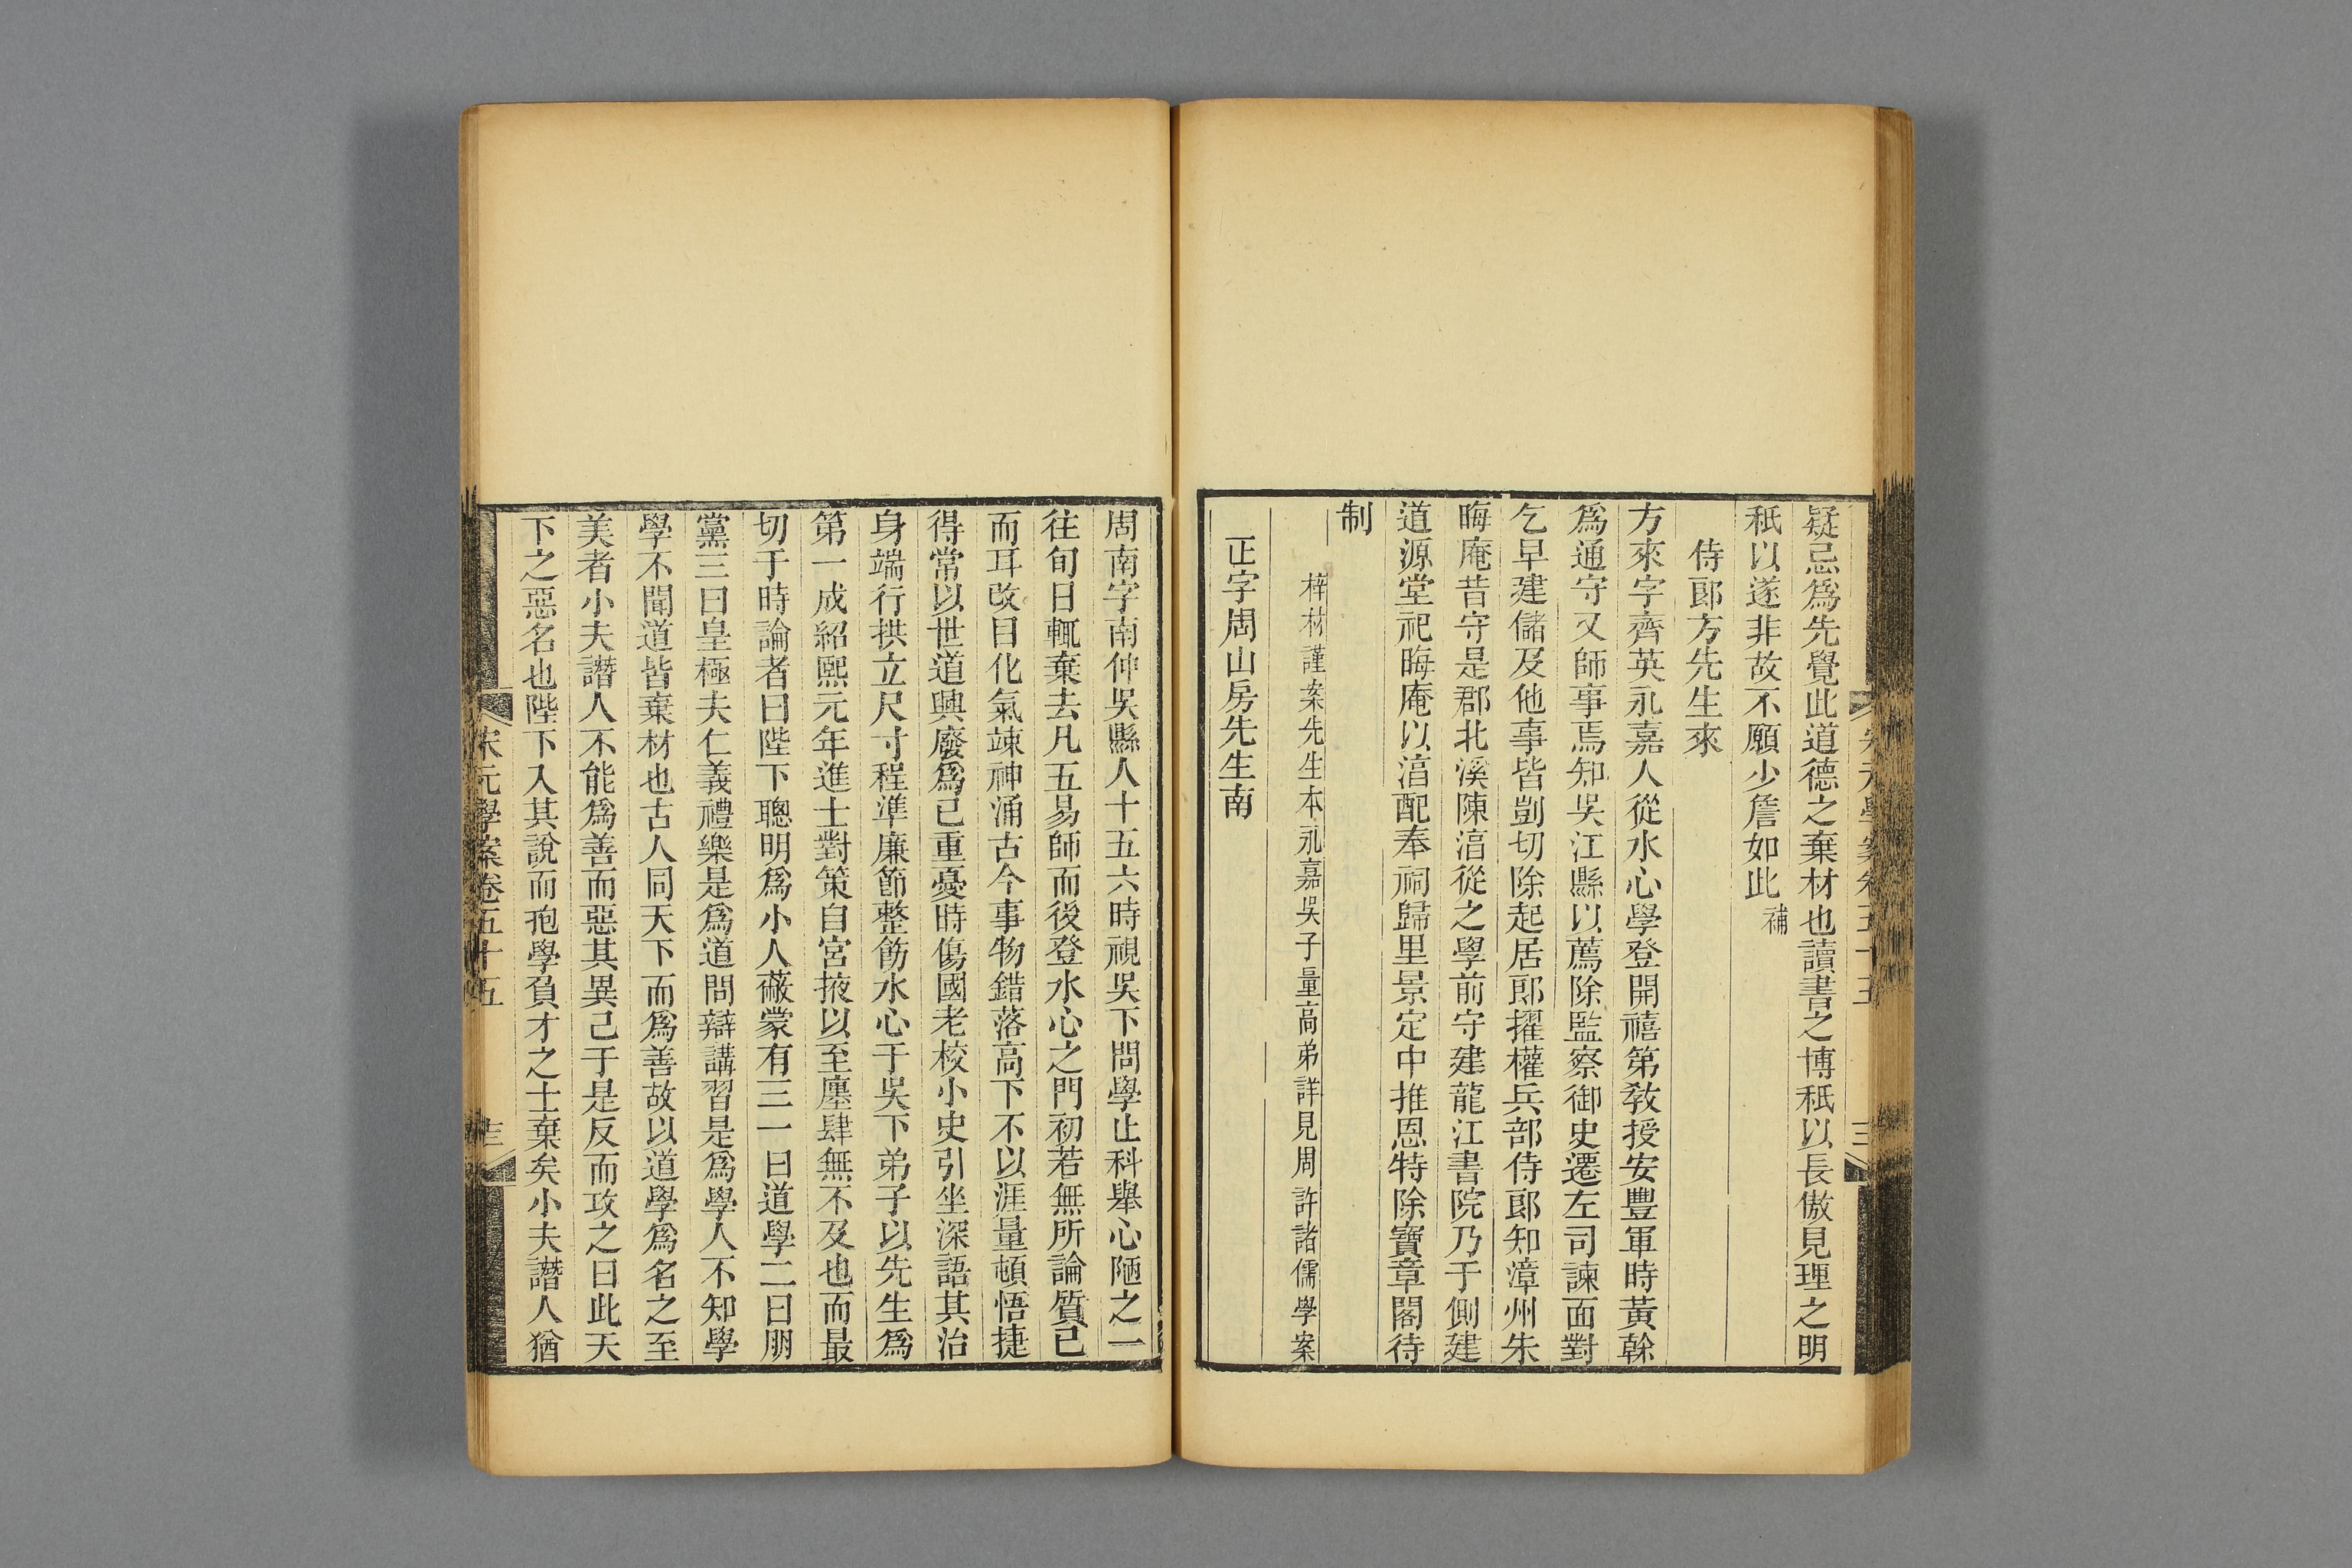 疑忌爲先覺此道德之棄材也讀書之博秖以長傲見理之明
秖以遂非故不願少詹如此補
侍郎方先生來
方來字齊英永嘉人從水心學登開禧第敎授安豐軍時黃榦
爲通守又師事焉知吳江縣以薦除監察御史遷左司諫面對
乞早建儲及他事皆剴切除起居郎擢權兵部侍郎知漳州朱
晦庵昔守是郡北溪陳淳從之學前守建龍江書院乃于側建
道源堂祀晦庵以淳配奉祠歸里景定中推恩特除寶章閣待
制
梓材謹案先生本永嘉吳子量高弟詳見周許諸儒學案
正字周山房先生南
周南字南仲吳縣人十五六時視吳下問學止科舉心陋之一
往旬日輒棄去凡五易師而後登水心之門初若無所論質已
而耳改目化氣竦神涌古今事物錯落高下不以涯量頓悟捷
得常以世道興廢爲已重憂時傷國老校小史引坐深語其治
身端行拱立尺寸程準廉節整飭水心于吳下弟子以先生爲
第一成紹熙元年進士對策自宮掖以至廛肆無不及也而最
切于時論者曰陛下聰明爲小人蔽蒙有三一曰道學二曰朋
黨三曰皇極夫仁義禮樂是爲道問辯講習是爲學人不知學
學不聞道皆棄材也古人同天下而爲善故以道學爲名之至
美者小夫譖人不能爲善而惡其異己于是反而攻之曰此天
下之惡名也陛下入其說而抱學負才之士棄矣小夫譖人猶
宋元學案卷五十五